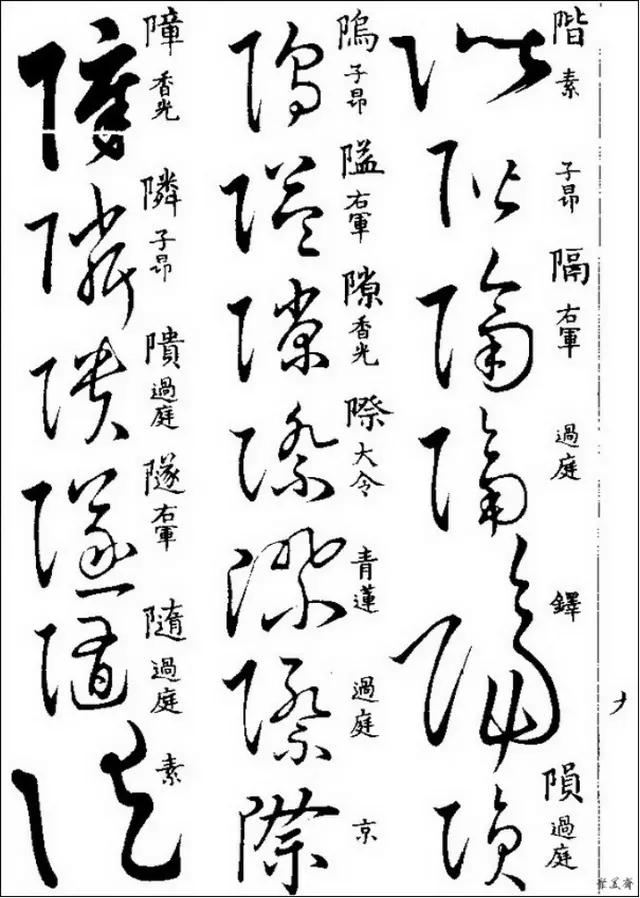 階 素
子昂
隔 右軍
過庭
鐸
隕 過庭
隖 子昂
隘 右軍
隙 香光
際 大令
青蓮
過庭
京
障 香光
隣 子昂
隤 過庭
隧 右軍
隨 過庭
素